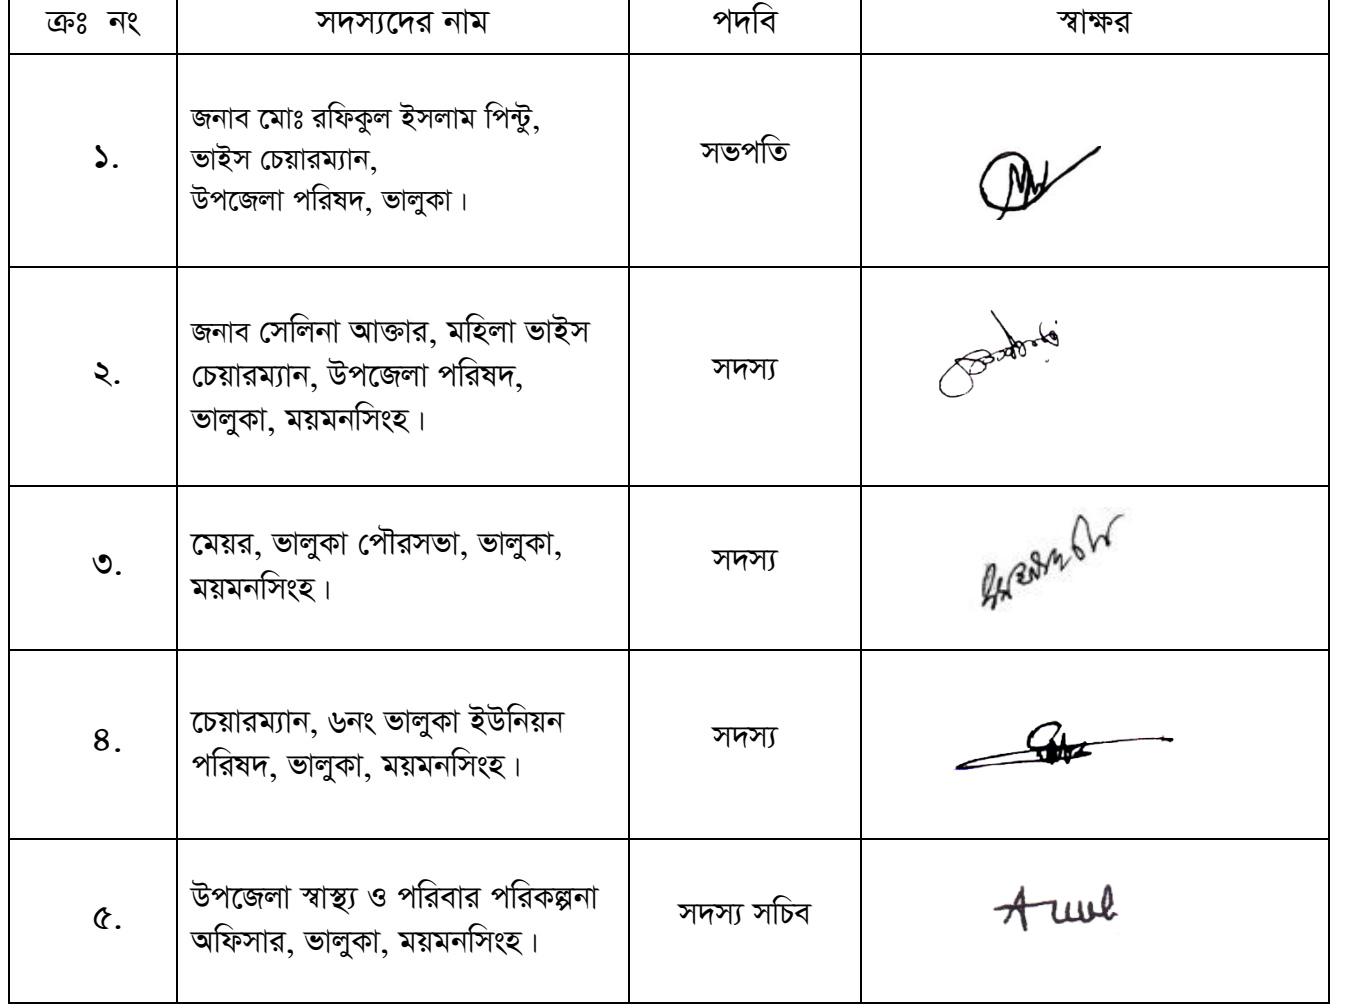 ক্রঃ নং সদস্যদের নাম পদবি স্বাক্ষর
১. জনাব মোঃ রফিকুল ইসলাম পিন্টু,
ভাইস চেয়ারম্যান,
উপজেলা পরিষদ, ভালুকা।
সভপতি
২. জনাব সেলিনা আক্তার, মহিলা ভাইস
চেয়ারম্যান, উপজেলা পরিষদ,
ভালুকা, ময়মনসিংহ।
সদস্য
৩. মেয়র, ভালুকা পৌরসভা, ভালুকা,
ময়মনসিংহ।
সদস্য
৪. চেয়ারম্যান, ৬নং ভালুকা ইউনিয়ন
পরিষদ, ভালুকা, ময়মনসিংহ।
সদস্য
৫. উপজেলা স্বাস্থ্য ও পরিবার পরিকল্পনা
অফিসার, ভালুকা, ময়মনসিংহ।
সদস্য সচিব